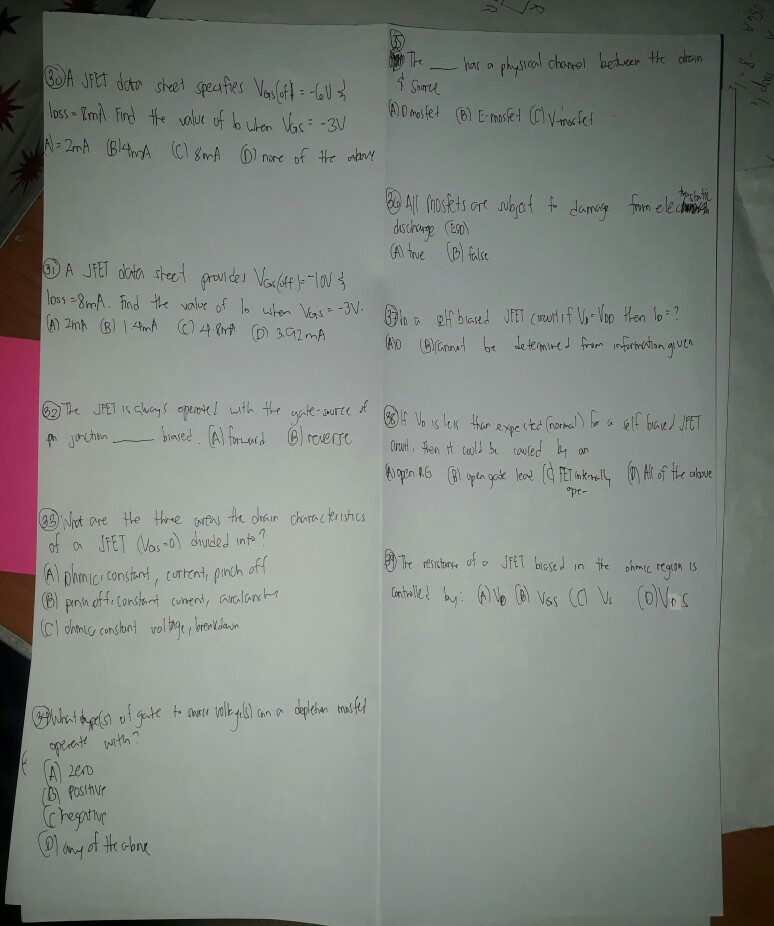 30) A JFET data sheet specifies VGS(off) = -6V &
loss = 8mA. Find the value of Io when VGS = -3V
A) = 2mA (B) 4mA (C) 8mA (D) none of the above
31) A JFET data sheet provides VGS(off) = -10V &
loss = 8mA. Find the value of Io when VGS = -3V.
(A) 2mA (B) 1.4mA (C) 4.8mA (D) 3.92mA
32) The JFET is always operated with the gate-source of
pn junction ____ biased. (A) forward (B) reverse
33) What are the three areas the drain characteristics
of a JFET (VGS=0) divided into?
(A) ohmic, constant, current, pinch off
(B) pinch off, constant current, avalanche
(C) ohmic, constant voltage, breakdown
34) What type(s) of gate to source voltage(s) can a depletion mosfet
operate with?
(A) zero
(B) positive
(C) negative
(D) any of the above
35
The ___ has a physical channel between the drain
& source
(A) D mosfet (B) E-mosfet (C) V-mosfet
36) All mosfets are subject to damage from electrostatic
discharge (ESD)
(A) true (B) false
37) In a self biased JFET circuit if VD = VDD then ID = ?
(A) 0 (B) cannot be determined from information given
38) If VD is less than expected (normal) for a self biased JFET
circuit, then it could be caused by an
(A) open RG (B) open gate lead (C) FET internally open (D) All of the above
39) The resistance of a JFET biased in the ohmic region is
controlled by: (A) VD (B) VGS (C) VS (D) VDS